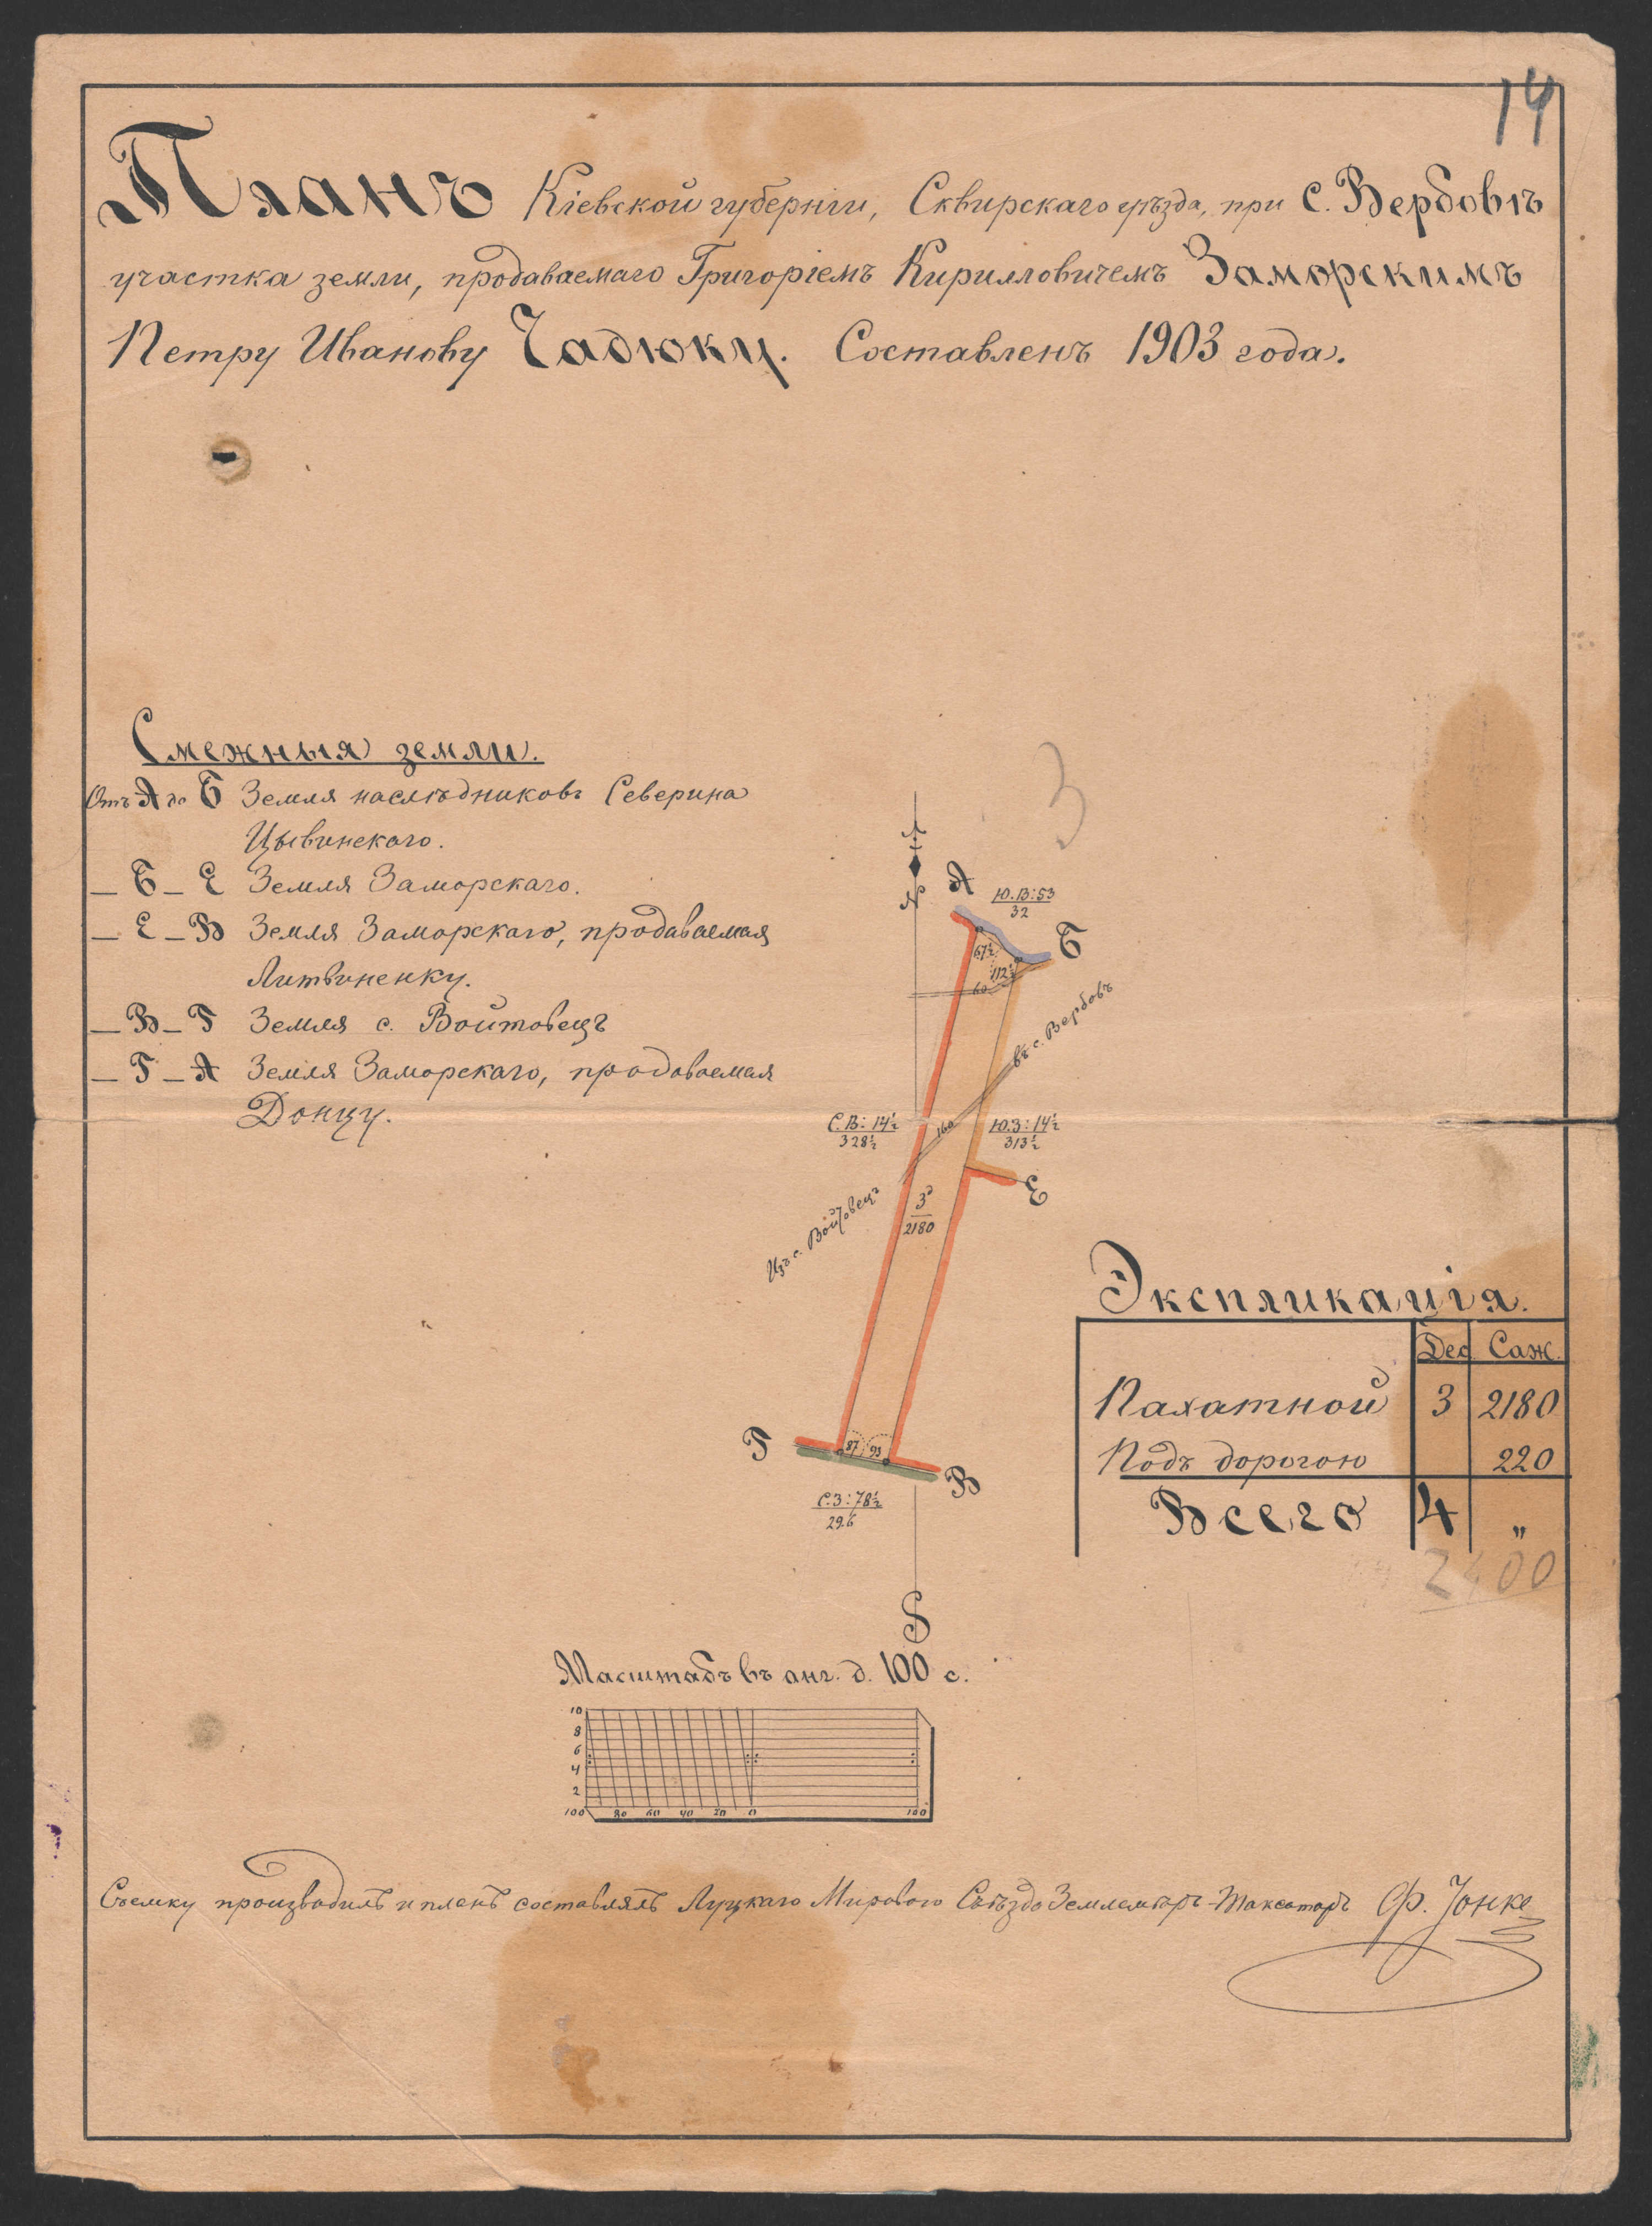 14
Планъ Кіевской губерніи, Сквирскаго уѣзда, при с. Вербовѣ
участка земли, продаваемаго Григоріемъ Кирилловичемъ Заморскимъ
Петру Иванову Чадюку. Составленъ 1903 года.
Смежныя земли.
Отъ А до Б Земля наслѣдниковъ Северина
Цывинскаго.
— Б — Е Земля Заморскаго.
— Е — В Земля Заморскаго, продаваемая
Литвиненку.
— В — Г Земля с. Войтовецъ
— Г — А Земля Заморскаго, продаваемая
Донцу.
3
N
А
Ю.В:53
32
Б
67½
112½
60
въ с. Вербовъ
С.В: 14½
328½
160
Ю.З:14½
313½
Е
Изъ с. Войтовецъ
3д
2180
Г
87
93
В
С.З:78½
29.6
S
Экспликація.
Дес. Саж.
Пахатной 3 2180
Подъ дорогою 220
Всего 4 „
2400
Масштабъ въ анг. д. 100 с.
10
8
6
4
2
100 80 60 40 20 0 100
Съемку производилъ и планъ составлялъ Луцкаго Мирового Съѣзда Землемѣръ-Таксаторъ Ф. Іонке